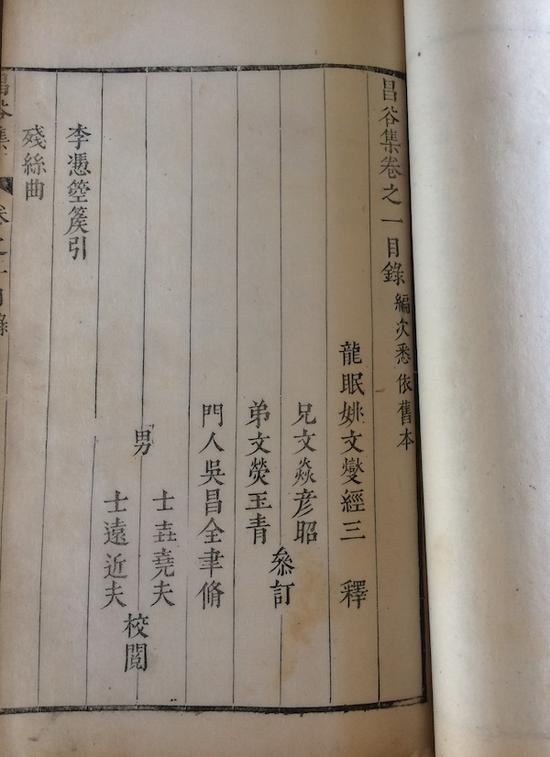 昌谷集卷之一目錄 編次悉依舊本
龍眠姚文燮經三 釋
兄文焱彥昭
弟文熒玉青
叅訂
門人吳昌全聿脩
男
士壵堯夫
士遠近夫
校閱
李憑箜篌引
殘絲曲
昌谷集 卷之一目錄